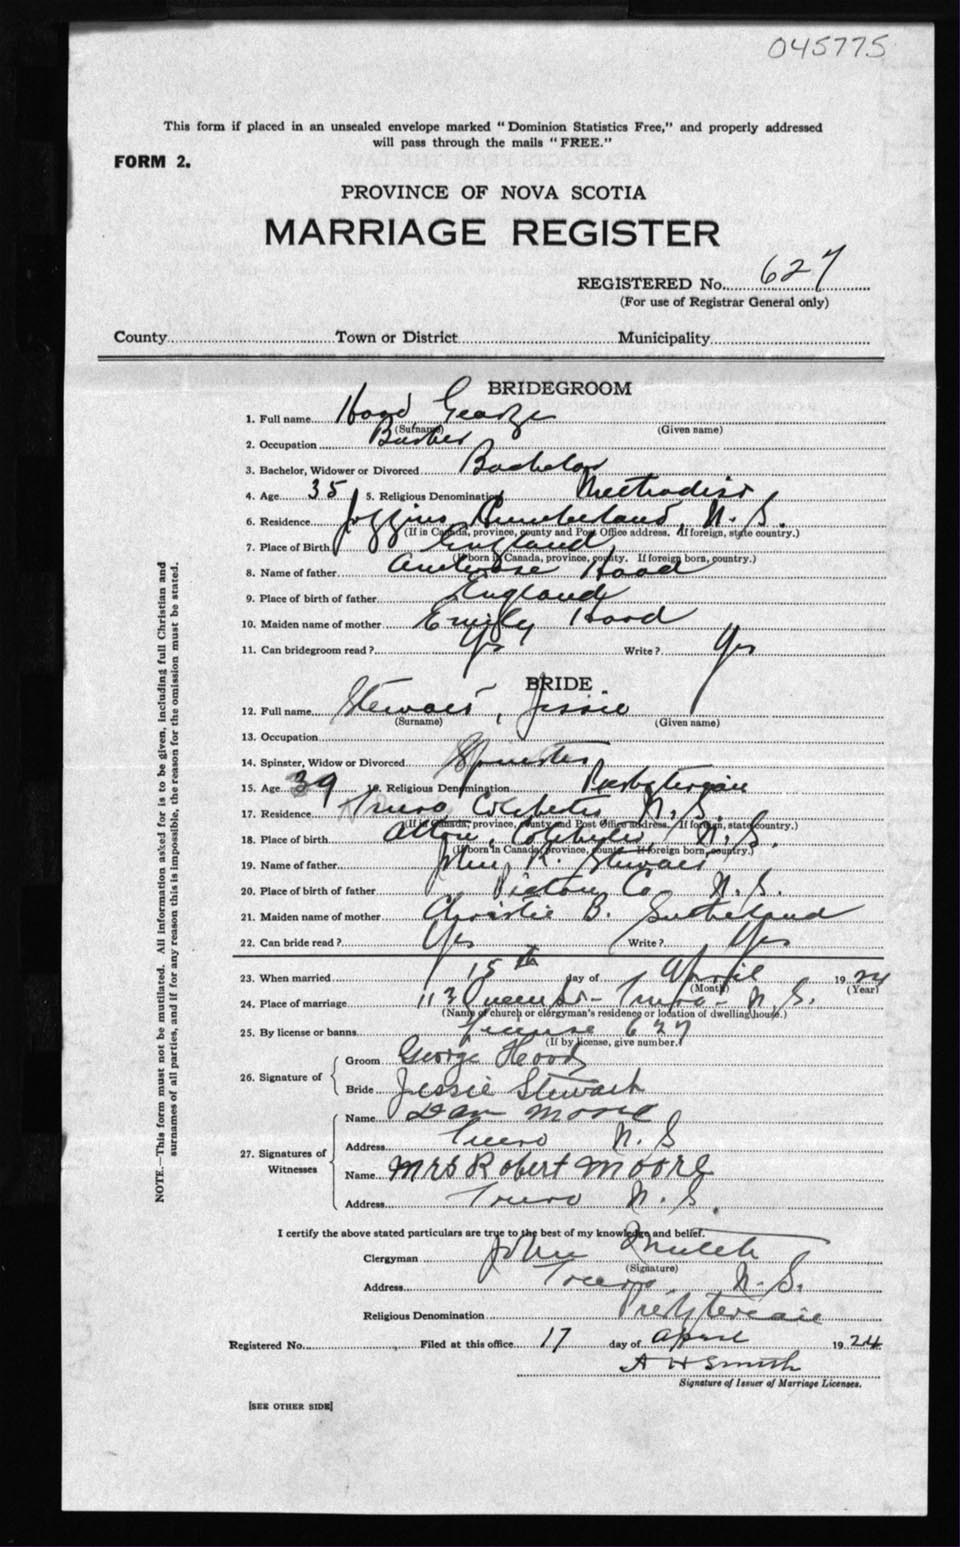 045775
This form if placed in an unsealed envelope marked "Dominion Statistics Free," and properly addressed
will pass through the mails "FREE."
FORM 2.
PROVINCE OF NOVA SCOTIA
MARRIAGE REGISTER
REGISTERED No. 627
(For use of Registrar General only)
County Town or District Municipality
BRIDEGROOM
1. Full name Hood George
(Surname) (Given name)
2. Occupation Barber
3. Bachelor, Widower or Divorced Bachelor
4. Age 35 5. Religious Denomination Methodist
6. Residence Joggins Cumberland, N.S.
(If in Canada, province, county and Post Office address. If foreign, state country.)
7. Place of Birth England
(If born in Canada, province, county. If foreign born, country.)
8. Name of father Ambrose Hood
9. Place of birth of father England
10. Maiden name of mother Emily Hood
11. Can bridegroom read? Yes Write? Yes
BRIDE
12. Full name Stewart, Jessie
(Surname) (Given name)
13. Occupation
14. Spinster, Widow or Divorced Spinster
15. Age 39 16. Religious Denomination Presbyterian
17. Residence Truro, Colchester N.S.
(If in Canada, province, county and Post Office address. If foreign, state country.)
18. Place of birth Alton, Colchester, N.S.
(If born in Canada, province, county. If foreign born, country.)
19. Name of father John R. Stewart
20. Place of birth of father Pictou Co N.S.
21. Maiden name of mother Christie B. Sutherland
22. Can bride read? Yes Write? Yes
23. When married 15th day of April 1924
(Month) (Year)
24. Place of marriage 113 Queen St- Truro- N.S.
(Name of church or clergyman's residence or location of dwelling house.)
25. By license or banns License 627
(If by license, give number.)
26. Signature of Groom George Hood
Bride Jessie Stewart
27. Signatures of Witnesses Name Dan Moore
Address Truro N.S
Name Mrs Robert Moore
Address Truro N.S.
I certify the above stated particulars are true to the best of my knowledge and belief.
Clergyman John Mutch
(Signature)
Address Truro N.S.
Religious Denomination Presbyterian
Registered No. Filed at this office 17 day of April 1924
A H Smith
Signature of Issuer of Marriage Licenses.
[SEE OTHER SIDE]
NOTE.—This form must not be mutilated. All information asked for is to be given, including full Christian and
surnames of all parties, and if for any reason this is impossible, the reason for the omission must be stated.